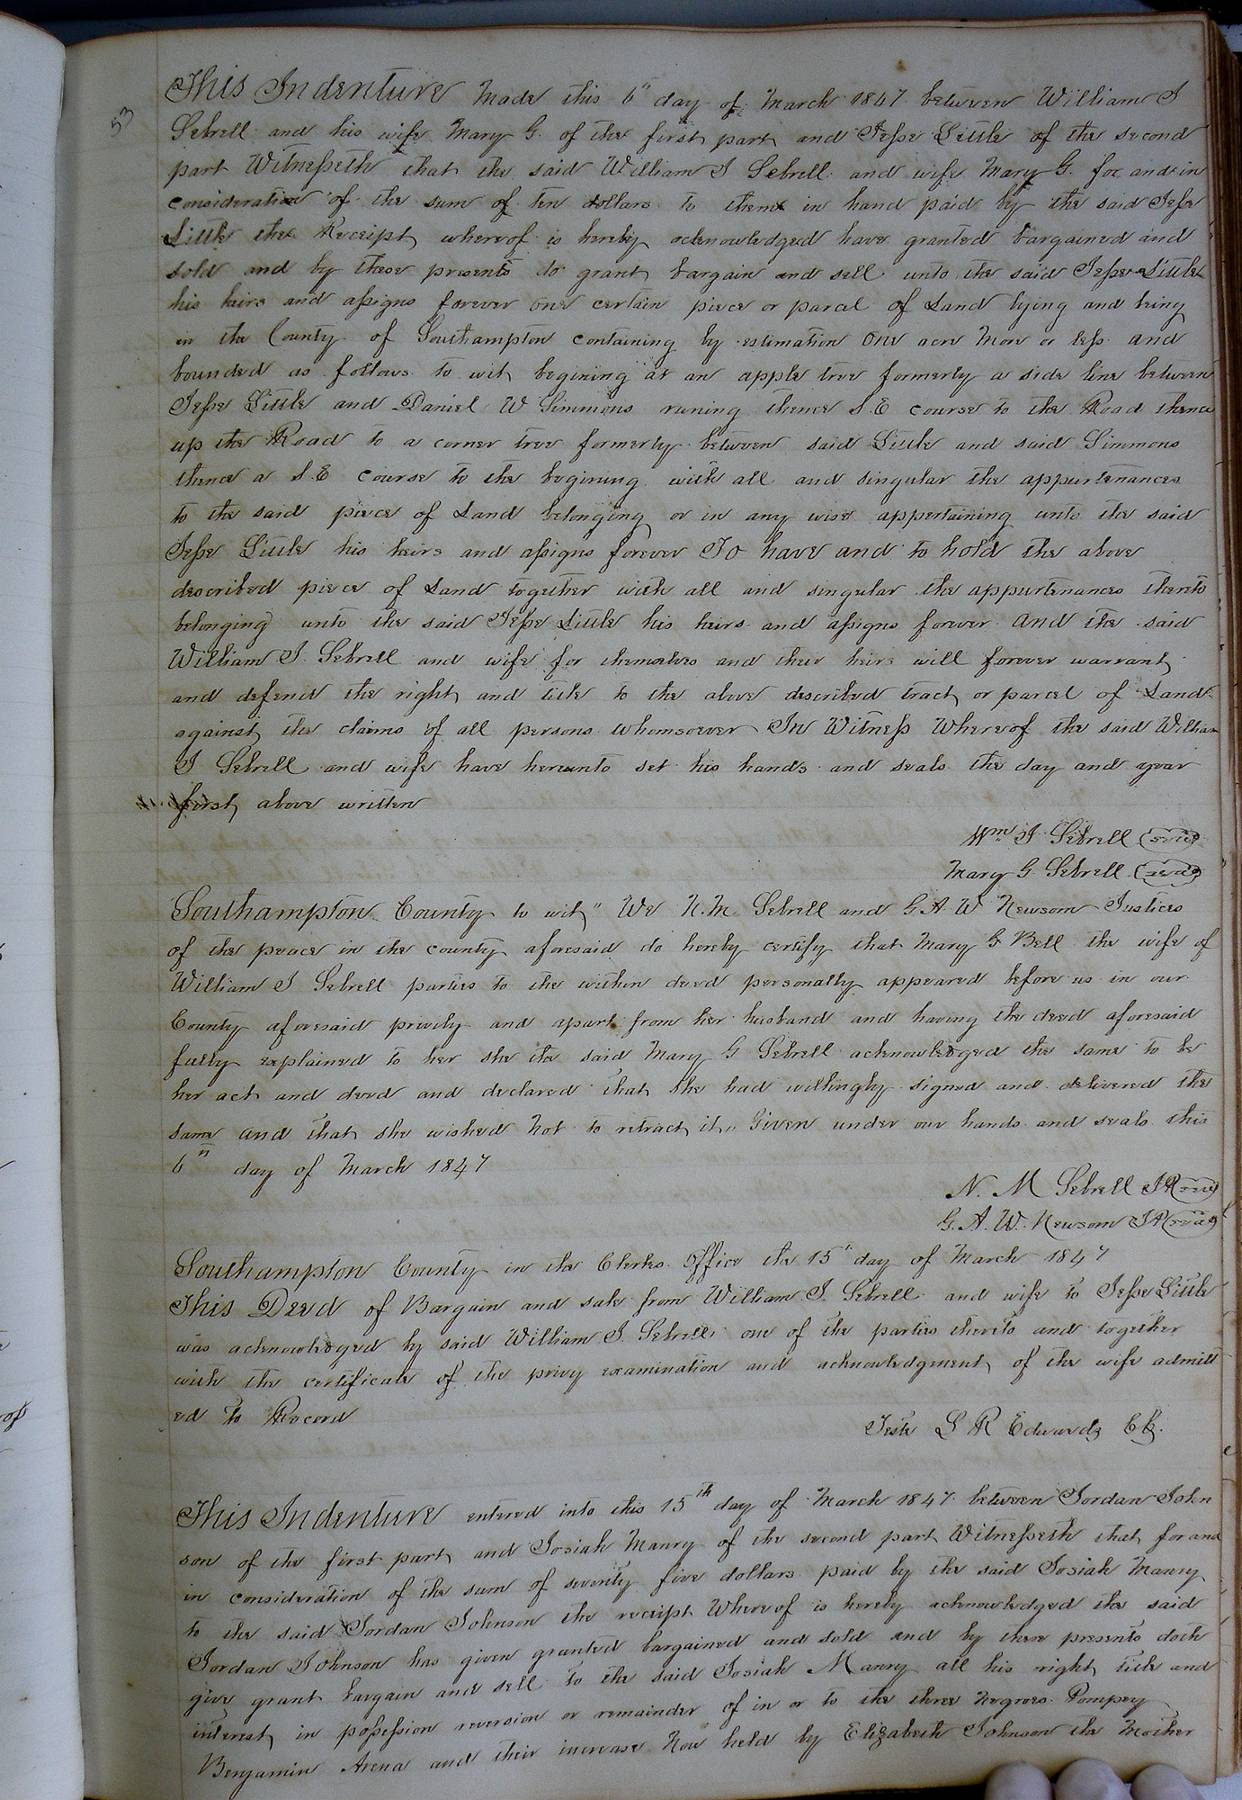 53
This Indenture Made this 6th day of March 1847 between William J
Sebrell and his wife Mary G. of the first part and Jesse Little of the second
part Witnesseth that the said William J Sebrell and wife Mary G. for and in
consideration of the sum of ten dollars to them in hand paid by the said Jesse
Little the Receipt whereof is hereby acknowledged have granted bargained and
sold and by these presents do grant bargain and sell unto the said Jesse Little
his heirs and assigns forever one certain piece or parcel of Land lying and being
in the County of Southampton containing by estimation One acre More or less and
bounded as follows to wit begining at an apple tree formerly a side line between
Jesse Little and Daniel W Simmons runing thence S.E course to the Road thence
up the Road to a corner tree formerly between said Little and said Simmons
thence a S.E course to the begining with all and singular the appurtenances
to the said piece of Land belonging or in any wise appertaining unto the said
Jesse Little his heirs and assigns forever To have and to hold the above
described piece of Land together with all and singular the appurtenances thereto
belonging unto the said Jesse Little his heirs and assigns forever And the said
William J. Sebrell and wife for themselves and their heirs will forever warrant
and defend the right and title to the above described tract or parcel of Land
against the claims of all persons whomsoever In Witness Whereof the said William
J Sebrell and wife have hereunto set his hands and seals the day and year
first above written
Wm J Sebrell (seal)
Mary G Sebrell (seal)
Southampton County to wit" We N. M. Sebrell and G. A. W Newsom Justices
of the peace in the county aforesaid do hereby certify that Mary G Bell the wife of
William J Sebrell parties to the within deed personally appeared before us in our
County aforesaid privily and apart from her husband and having the deed aforesaid
fully explained to her she the said Mary G Sebrell acknowledged the same to be
her act and deed and declared that she had willingly signed and delivered the
same and that she wished not to retract it,, Given under our hands and seals this
6th day of March 1847
N. M Sebrell JP (seal)
G. A. W. Newsom JP (seal)
Southampton County in the Clerks Office the 15th day of March 1847
This Deed of Bargain and sale from William J. Sebrell and wife to Jesse Little
was acknowledged by said William J. Sebrell one of the parties thereto and together
with the certificate of the privy examination and acknowledgment of the wife admitt
ed to Record
Teste L R Edwards Clk.
This Indenture entered into this 15th day of March 1847 between Jordan John
son of the first part and Josiah Manry of the second part Witnesseth that for and
in consideration of the sum of seventy five dollars paid by the said Josiah Manry
to the said Jordan Johnson the receipt Whereof is hereby acknowledged the said
Jordan Johnson has given granted bargained and sold and by these presents doth
give grant bargain and sell to the said Josiah Manry all his right title and
interest in possession reversion or remainder of in or to the three Negroes Pompey
Benjamin Arena and their increase Now held by Elizabeth Johnson the Mother